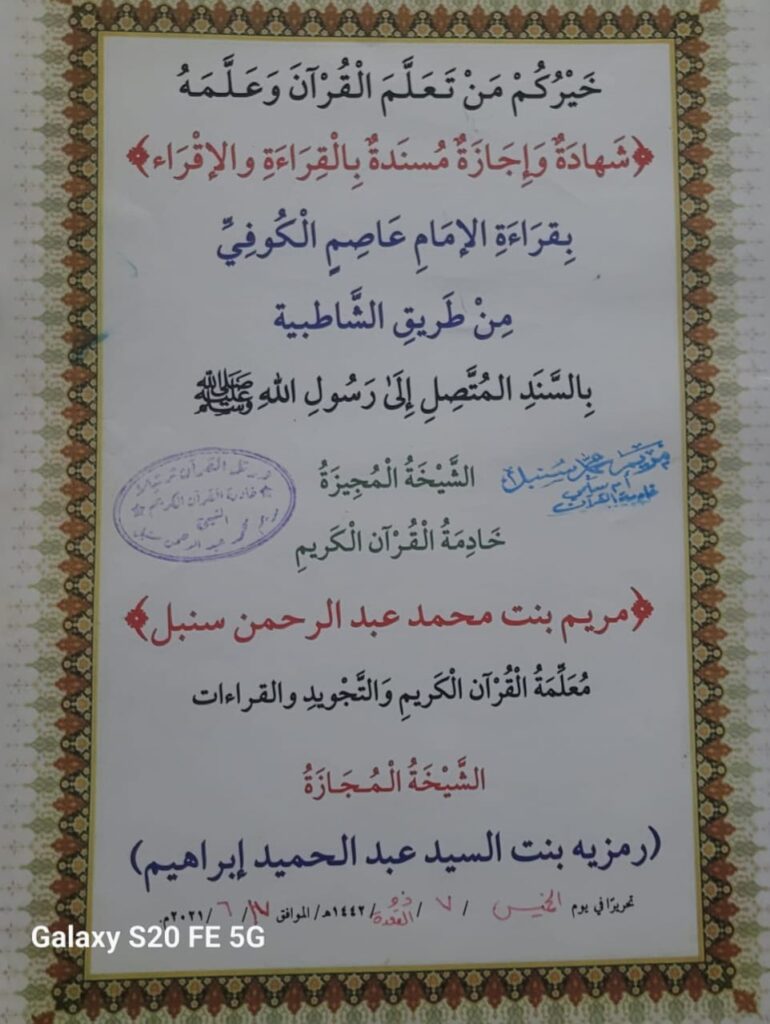 خَيْرُكُمْ مَنْ تَعَلَّمَ الْقُرْآنَ وَعَلَّمَهُ
﴿شَهادَةٌ وَإِجَازَةٌ مُسنَدةٌ بِالْقِرَاءَةِ والإقْرَاء﴾
بِقرَاءَةِ الإمَامِ عَاصِمٍ الْكُوفِيِّ
مِنْ طَريقِ الشَّاطبية
بِالسَّنَدِ المُتَّصِلِ إِلَىٰ رَسُولِ اللهِ ﷺ
مريم محمد سنبل
خادمة القرآن
الشَّيْخَةُ الْمُجِيزَةُ
خادمة القرآن الكريم
مريم محمد عبد الرحمن سنبل
خَادِمَةُ الْقُرْآن الْكَريمِ
﴿مريم بنت محمد عبد الرحمن سنبل﴾
مُعَلِّمَةُ الْقُرْآن الْكَريمِ وَالتَّجْويدِ والقراءات
الشَّيْخَةُ الْمُجَازَةُ
(رمزيه بنت السيد عبد الحميد إبراهيم)
تحريرًا في يوم الخميس / ٧ / ذو القعدة / ١٤٤٢هـ/ الموافق ١٧/ ٦ /٢٠٢١م.
Galaxy S20 FE 5G